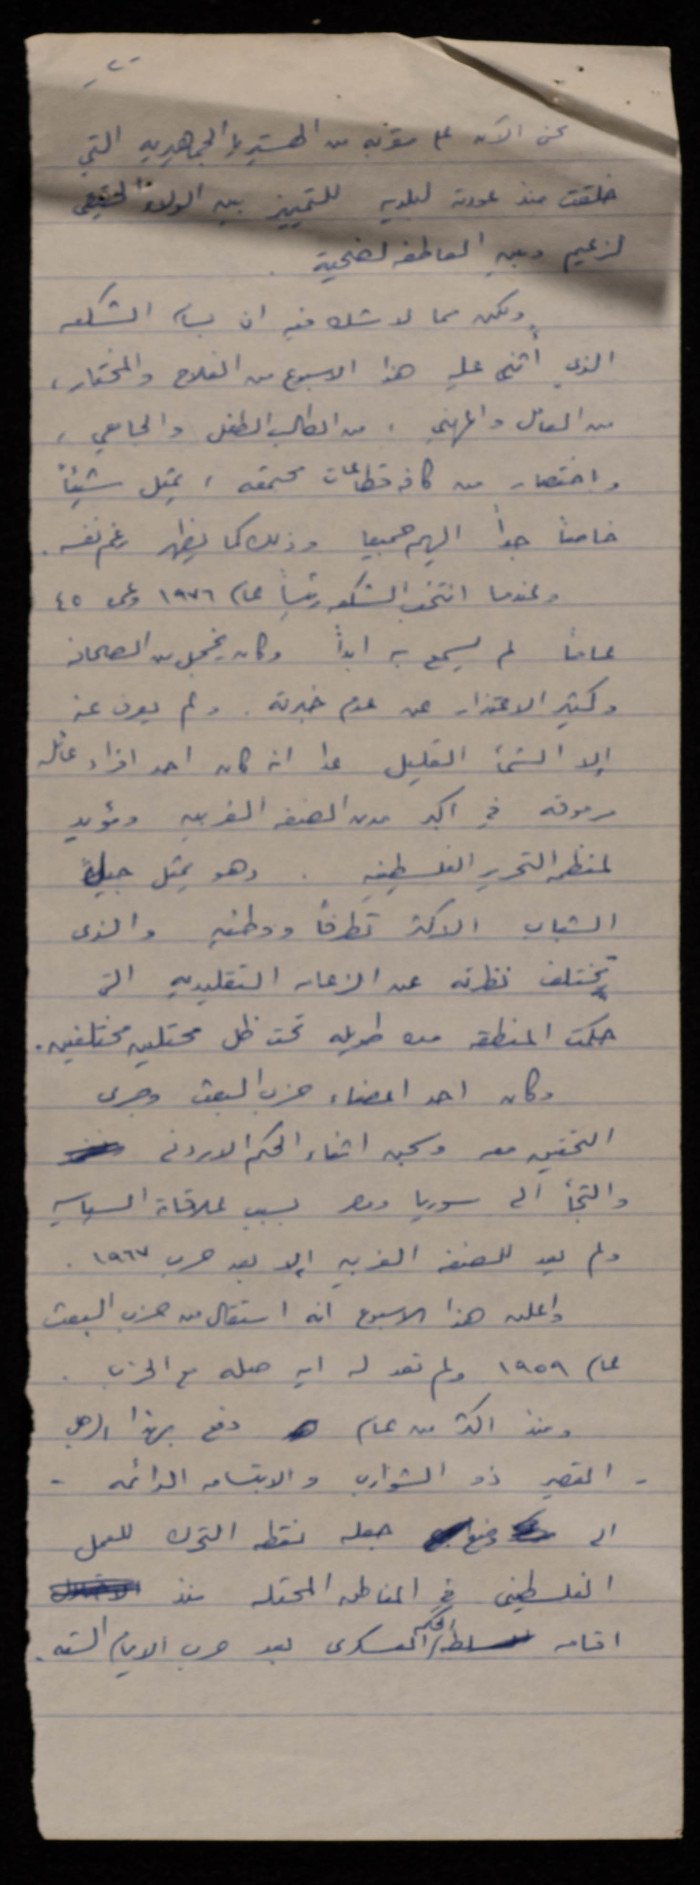 -٢-
نحن الآن على مقربه من الهستيريا الجماهيريه التي
خلقت منذ عودته لبلديه للتمييز بين الولاء الحقيقي
لزعيم وبين العاطفه لضحية .
ولكن مما لا شك فيه ان بسام الشكعه
الذي أثنى عليه هذا الاسبوع من الفلاح والمختار ،
من العامل والمهني ، من الطالب الطفل والجامعي ،
وباختصار من كافة قطاعات مجتمعه ، يمثل شيئاً
خاصاً جداً اليهم جميعا وذلك كما يظهر رغم نفسه .
وعندما انتخب الشكعه رئيساً عام ١٩٧٦ وعمره ٤٥
عاماً لم يسمع به ابداً وكان يخجل من الصحافه
وكثير الاعتذار عن عدم خبرته . ولم يعرف عنه
إلا الشئ القليل عدا انه كان احد افراد عائله
مرموقه في اكبر مدن الضفه الغربيه ومؤيد
لمنظمه التحرير الفلسطينيه . وهو يمثل جيل
الشباب الاكثر تطرفاً ووطنيه والذى
تختلف نظرته عن الزعامه التقليديه التي
حكمت المنطقه مده طويله تحت ظل محتلين مختلفين .
وكان احد اعضاء حزب البعث وجرى
التحقيق معه وسجن اثناء الحكم الاردنى
والتجأ الى سوريا ومصر بسبب علاقاته السياسيه
ولم يعد للضفه الغربيه إلا بعد حرب ١٩٦٧ .
واعلن هذا الاسبوع انه استقال من حزب البعث
عام ١٩٥٩ ولم تعد له ايه صله مع الحزب .
ومنذ اكثر من عام دفع بهذا الرجل
- القصير ذو الشوارب والابتسامه الدائمه -
الى وضع جعله نقطه التحرك للعمل
الفلسطيني في المناطق المحتله منذ
اقامه الحكم العسكرى بعد حرب الايام السته .